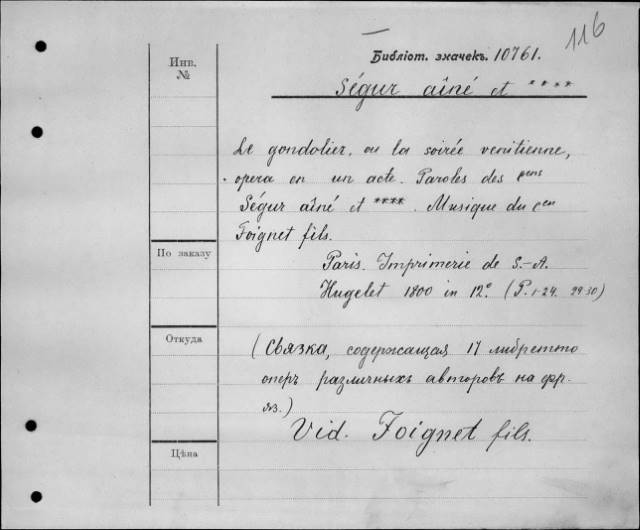 116
Библіот. значекъ. 10761.
Инв.
№
Ségur aîné et ****
Le gondolier, ou la soirée venitienne,
opera en un acte. Paroles des cens
Ségur aîné et ****. Musique du cen
Foignet fils.
По заказу
Paris. Imprimerie de S.-A.
Hugelet 1800 in 12º (P. 1-24. 29-30)
Откуда
(Связка, содержащая 17 либретто
оперъ различныхъ авторовъ на фр.
яз.)
Vid. Foignet fils.
Цѣна